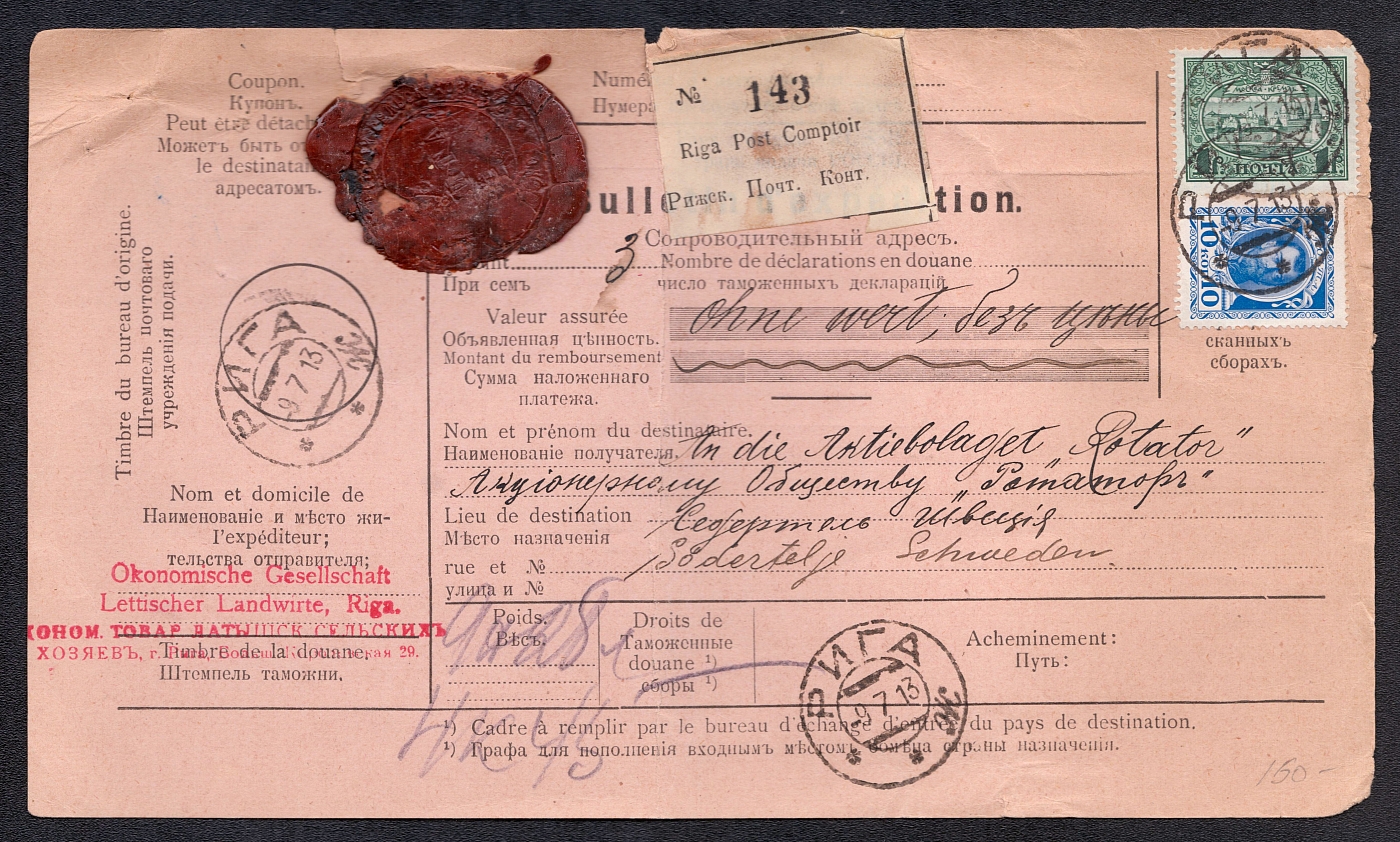 Coupon.
Купонъ.
Peut être détach
Можетъ быть о
le destinatai
адресатомъ.
Numé
Нумера
№ 143
Riga Post Comptoir
Рижск. Почт. Конт.
Bulle
tion.
Сопроводительный адресъ.
3 Nombre de déclarations en douane
При семъ
число таможенныхъ декларацій
Valeur assurée
Объявленная цѣнность.
ohne wert, безъ цѣны
Montant du remboursement
Сумма наложеннаго
платежа.
сканныхъ
сборахъ.
МОСКВА-КРЕМЛЬ
ПОЧТА
РИГА
9 7 13
10 КОП 10
Timbre du bureau d'origine.
Штемпель почтоваго
учрежденія подачи.
РИГА Ж
9 7 13
Nom et prénom du destinataire.
Наименованіе получателя.
An die Aktiebolaget „Rotator"
Акціонерному Обществу „Ротаторъ"
Lieu de destination
Мѣсто назначенія
Седертель Швеція
rue et №
улица и №
Södertelje Schweden
Nom et domicile de
Наименованіе и мѣсто жи-
l'expéditeur;
тельства отправителя;
Ökonomische Gesellschaft
Lettischer Landwirte, Riga.
КОНОМ. ТОВАР ЛАТЫШСК СЕЛЬСКИХЪ
ХОЗЯЕВЪ, г. Рига, 29.
Timbre de la douane.
Штемпель таможни.
Poids.
Вѣсъ.
Droits de
Таможенные
douane ¹)
сборы ¹)
Acheminement:
Путь:
РИГА Ж
9 7 13
¹) Cadre à remplir par le bureau d'échange d'entrée du pays de destination.
¹) Графа для пополненія входнымъ мѣстомъ обмѣна страны назначенія.
150-